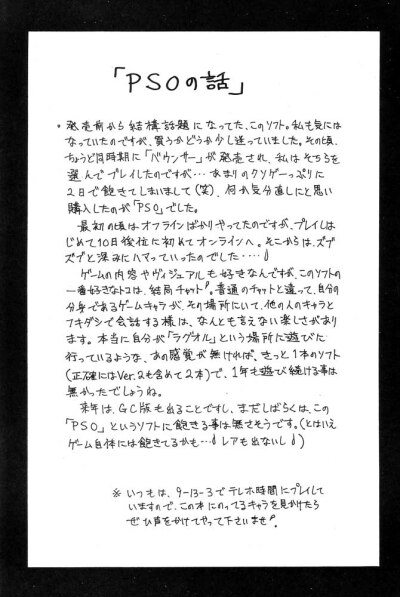 「PSOの話」
・発売前から結構話題になってた、このソフト。私も気には
なっていたのですが、買うかどうか少し迷っていました。その頃、
ちょうど同時期に「バウンサー」が発売され、私はそちらを
選んでプレイしたのですが…あまりのクソゲーっぷりに
2日で飽きてしまいまして(笑)、何か気分直しにと思い
購入したのが「PSO」でした。
最初の頃はオフラインばかりやってたのですが、プレイしは
じめて10日後位に初めてオンラインへ。そこからは、ズブ
ズブと深みにハマっていったのでした…。
ゲームの内容やヴィジュアルも好きなんですが、このソフトの
一番好きなトコは、結局チャット!。普通のチャットと違って、自分の
分身であるゲームキャラが、その場所にいて、他の人のキャラと
フキダシで会話する様は、なんとも言えない楽しさがあり
ます。本当に自分が「ラグオル」という場所に遊びに
行っているような、あの感覚が無ければ、きっと1本のソフト
(正確にはVer.2も含めて2本)で、1年も遊び続ける事は
無かったでしょうね。
来年は、GC版も出ることですし、まだしばらくは、この
「PSO」というソフトに飽きる事は無さそうです。(とはいえ
ゲーム自体には飽きてるかも…! レアも出ないし!)
※いつもは、9-13-3でテレホ時間にプレイして
いますので、この本にのってるキャラを見かけたら
ぜひ声をかけてやって下さいませ!。